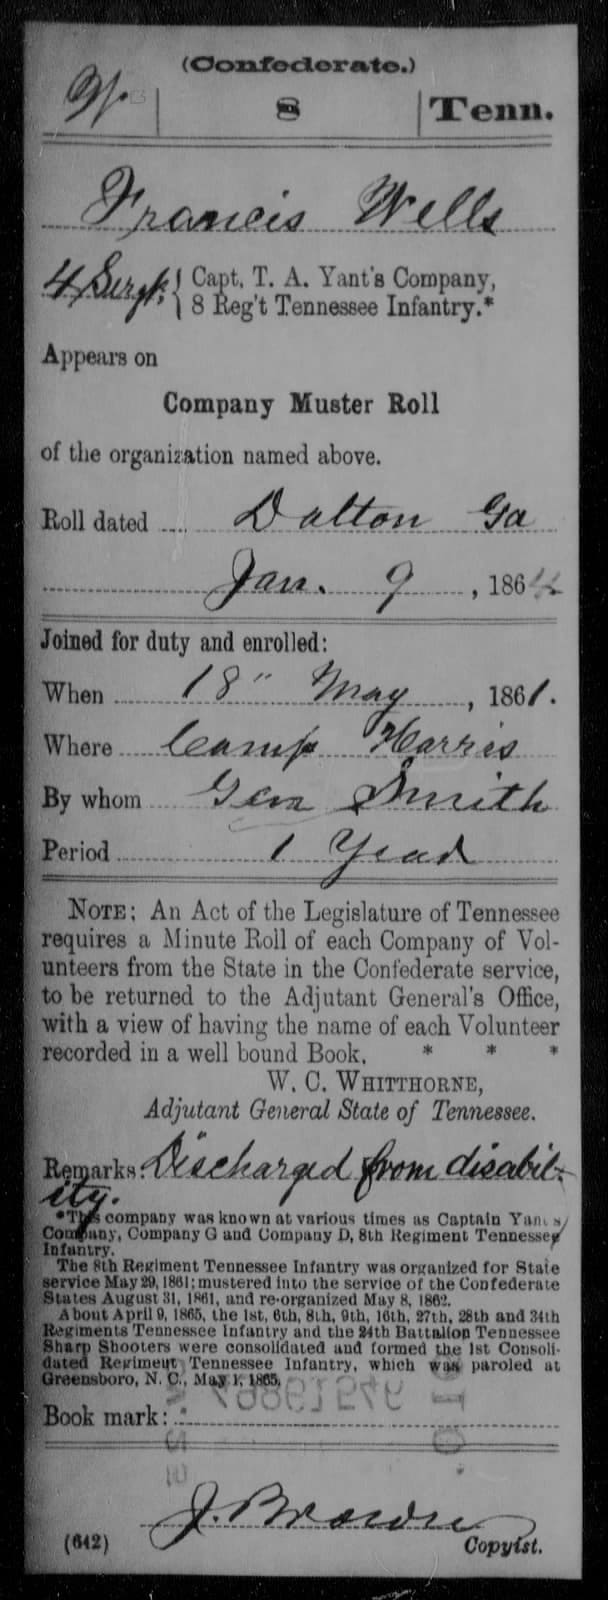 (Confederate.)
W | 8 | Tenn.
Francis Wells
4 Sergt. { Capt. T. A. Yant's Company,
8 Reg't Tennessee Infantry.*
Appears on
Company Muster Roll
of the organization named above.
Roll dated Dalton Ga
Jan. 9, 1864
Joined for duty and enrolled:
When 18" May, 1861.
Where Camp Harris
By whom Gen Smith
Period 1 Year
NOTE: An Act of the Legislature of Tennessee
requires a Minute Roll of each Company of Vol-
unteers from the State in the Confederate service,
to be returned to the Adjutant General's Office,
with a view of having the name of each Volunteer
recorded in a well bound Book. * * *
W. C. WHITTHORNE,
Adjutant General State of Tennessee.
Remarks: Discharged from disabil-
ity.
*This company was known at various times as Captain Yant's
Company, Company G and Company D, 8th Regiment Tennessee
Infantry.
The 8th Regiment Tennessee Infantry was organized for State
service May 29, 1861; mustered into the service of the Confederate
States August 31, 1861, and re-organized May 8, 1862.
About April 9, 1865, the 1st, 6th, 8th, 9th, 16th, 27th, 28th and 34th
Regiments Tennessee Infantry and the 24th Battalion Tennessee
Sharp Shooters were consolidated and formed the 1st Consoli-
dated Regiment Tennessee Infantry, which was paroled at
Greensboro, N. C., May 1, 1865.
Book mark:
J. Brown
(642) Copyist.